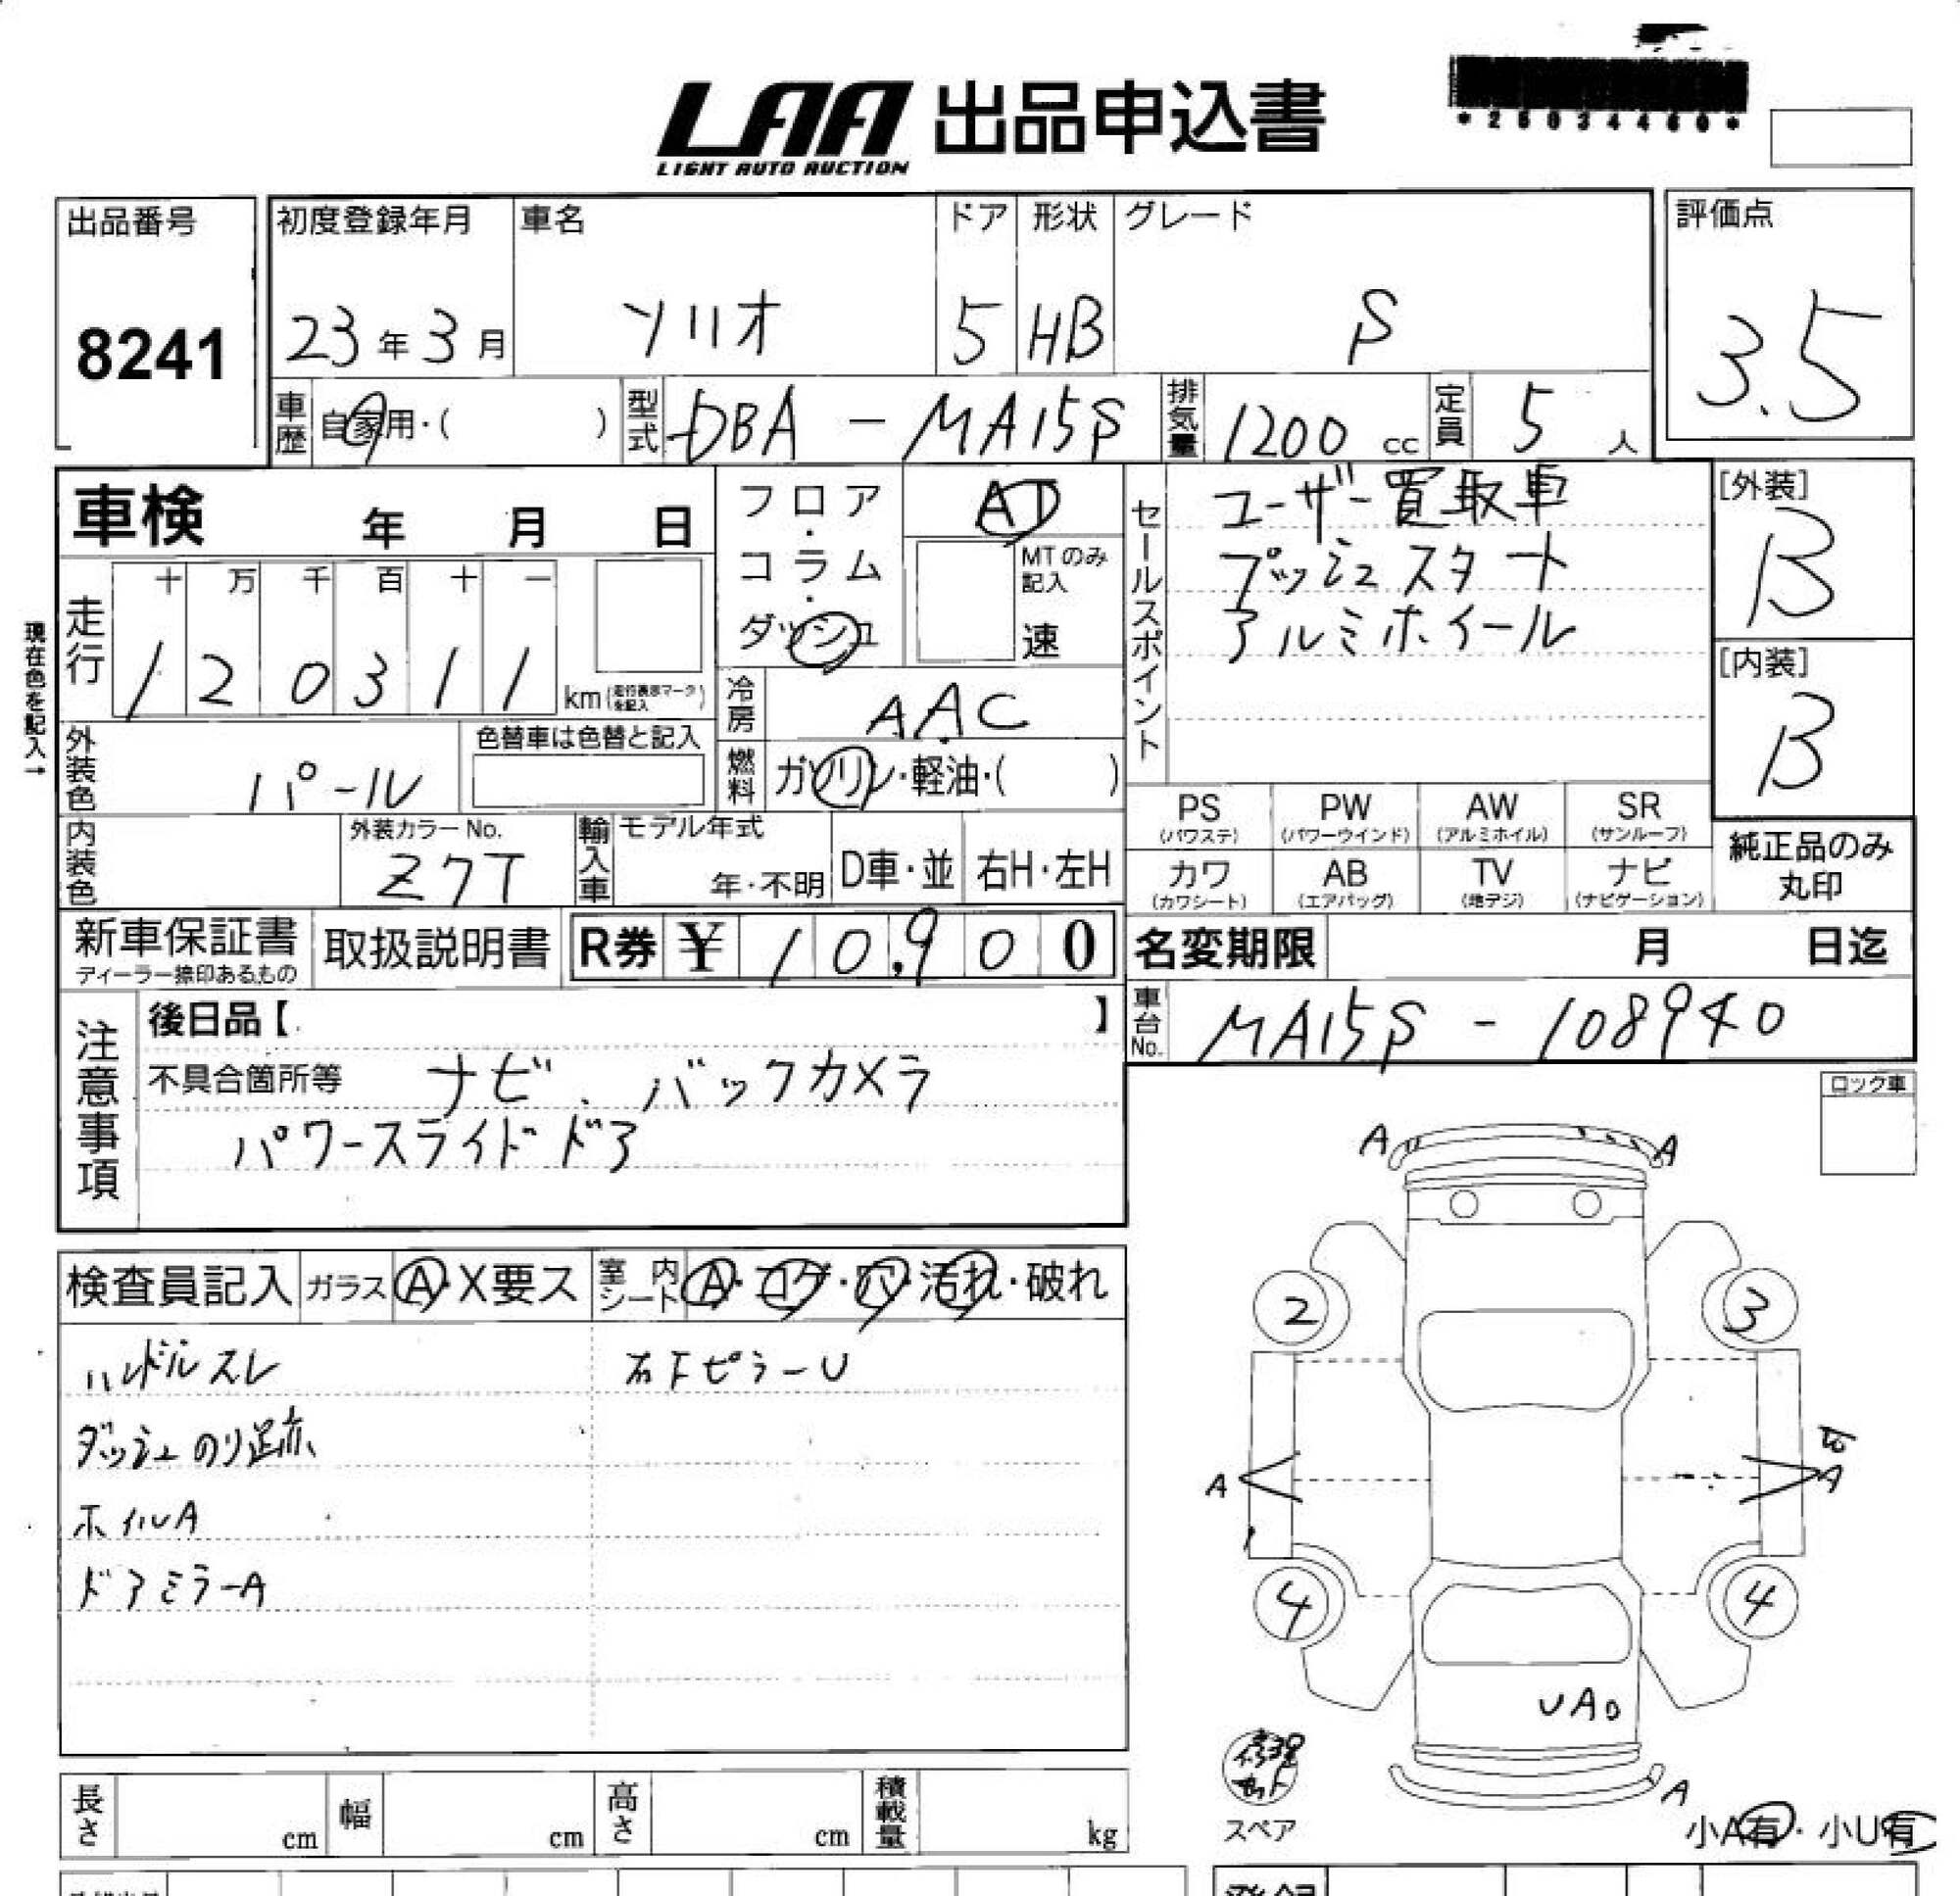 LAA 出品申込書
LIGHT AUTO AUCTION
*25034460*
出品番号
8241
初度登録年月
23年3月
車名
ソリオ
ドア
5
形状
HB
グレード
S
評価点
3.5
車歴
自家用・( )
型式
DBA-MA15S
排気量
1200cc
定員
5人
車検 年 月 日
現在色を記入→
走行
十万千百十一
120311
km(走行表示マークを記入)
フロア・コラム・ダッシュ
AT
MTのみ記入
速
冷房
AAC
燃料
ガソリン・軽油・( )
セールスポイント
ユーザー買取車
プッシュスタート
アルミホイール
[外装]
B
[内装]
B
外装色
パール
色替車は色替と記入
内装色
外装カラーNo.
Z7T
輸入車
モデル年式
年・不明
D車・並
右H・左H
PS
(パワステ)
PW
(パワーウインド)
AW
(アルミホイル)
SR
(サンルーフ)
カワ
(カワシート)
AB
(エアバッグ)
TV
(地デジ)
ナビ
(ナビゲーション)
純正品のみ
丸印
新車保証書
ディーラー捺印あるもの
取扱説明書
R券 ¥10,900
名変期限 月 日迄
車台No.
MA15S-108940
注意事項
後日品【 】
不具合箇所等 ナビ、バックカメラ
パワースライドドア
ロック車
検査員記入
ガラス A・X要ス
室内シート A・コゲ・穴・汚れ・破れ
ハンドルスレ
右Fピラー U
ダッシュのり跡
ホイルA
ドアミラーA
A A
2 3
A A
4 4
UA
A
修理セット
スペア
小A有・小U有
長さ cm
幅 cm
高さ cm
積載量 kg